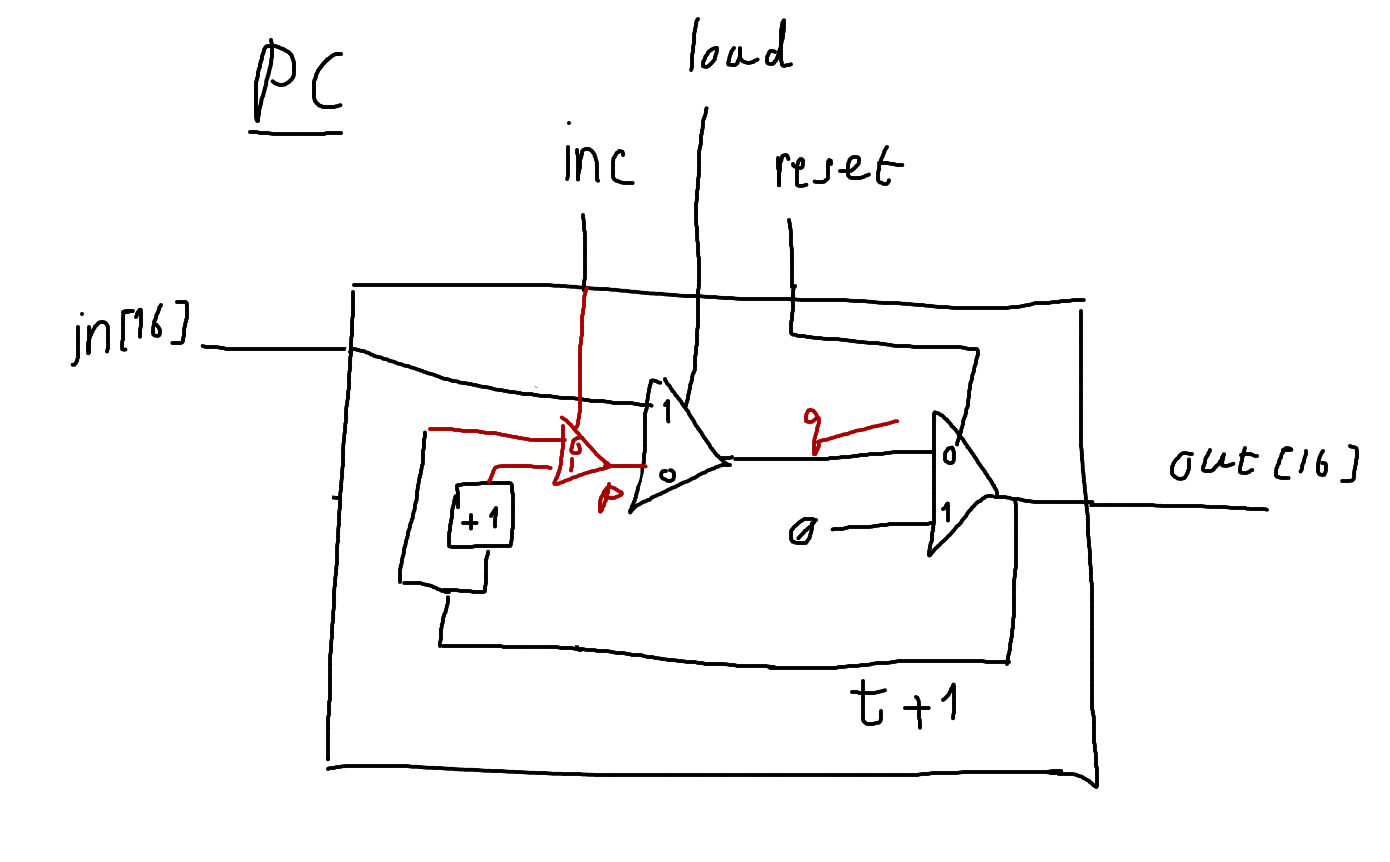 PC
load
inc
reset
in[16]
1
0
0
1
p
+1
q
0
1
0
out[16]
t+1